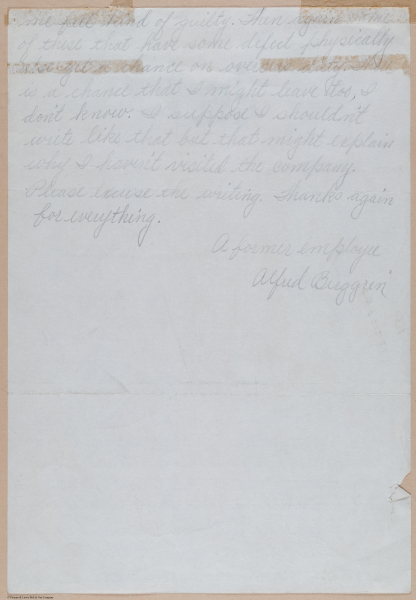 me feel kind of guilty. Then again some
of these that have some defect physically
also get a chance on overseas duty.
is a chance that I might leave too, I
don't know. I suppose I shouldn't
write like that but that might explain
why I haven't visited the company.
Please excuse the writing. Thanks again
for everything.
A former employee
Alfred Berggren